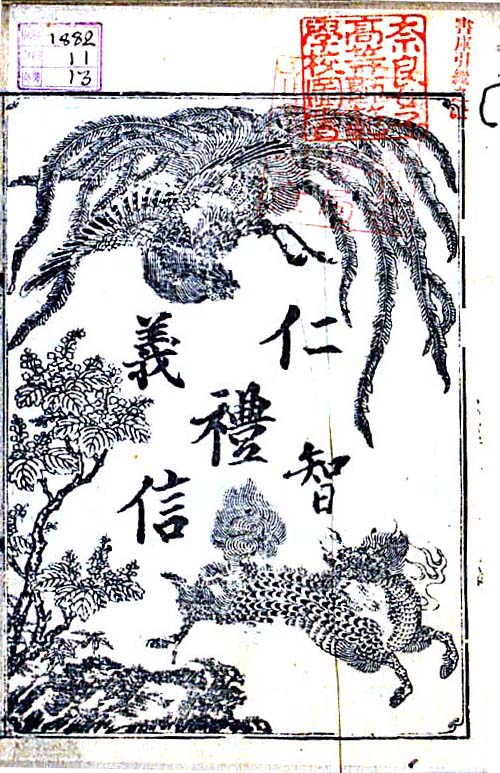 1882
11
13
奈良女子
高等師範
學校圖書
仁
義
禮
智
信